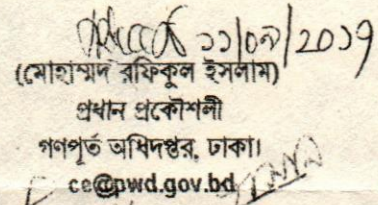 ১১/০৯/2০১৭
(মোহাম্মদ রফিকুল ইসলাম)
প্রধান প্রকৌশলী
গণপূর্ত অধিদপ্তর, ঢাকা।
ce@pwd.gov.bd